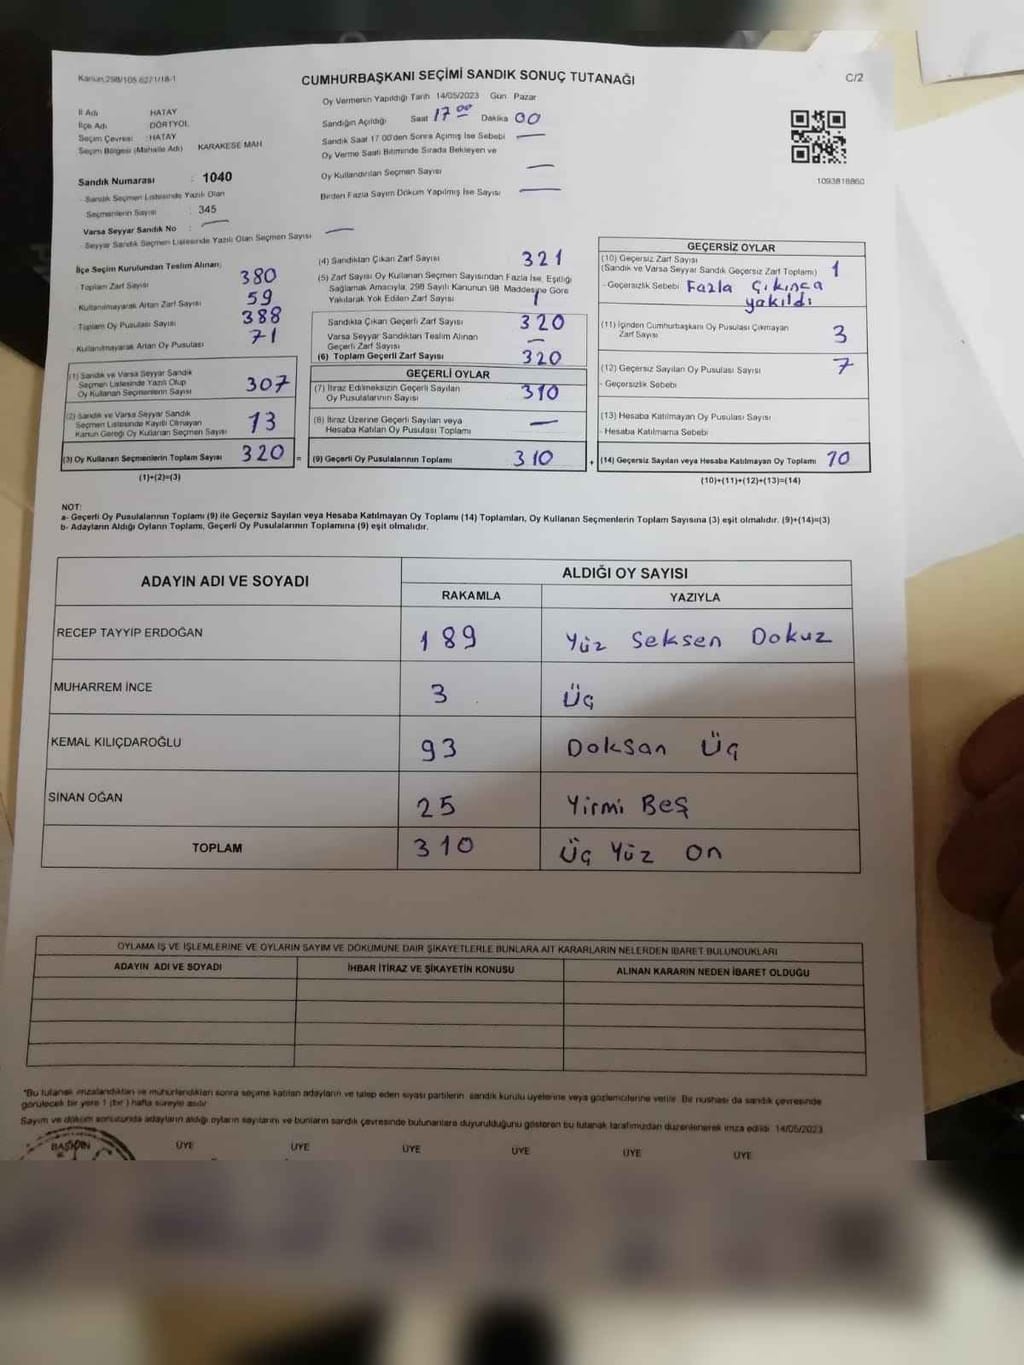 Kanun:298/105 6271/18-1
CUMHURBAŞKANI SEÇİMİ SANDIK SONUÇ TUTANAĞI
C/2
İl Adı HATAY
İlçe Adı DÖRTYOL
Seçim Çevresi :HATAY
Seçim Bölgesi (Mahalle Adı) KARAKESE MAH
Sandık Numarası : 1040
- Sandık Seçmen Listesinde Yazılı Olan
Seçmenlerin Sayısı : 345
Varsa Seyyar Sandık No : —
- Seyyar Sandık Seçmen Listesinde Yazılı Olan Seçmen Sayısı —
Oy Vermenin Yapıldığı Tarih 14/05/2023 Gün Pazar
Sandığın Açıldığı Saat 17 00 Dakika 00
Sandık Saat 17 00'den Sonra Açımış İse Sebebi —
Oy Verme Saati Bitiminde Sırada Bekleyen ve
Oy Kullandırılan Seçmen Sayısı —
Birden Fazla Sayım Döküm Yapılmış İse Sayısı —
1093818860
İlçe Seçim Kurulundan Teslim Alınan;
- Toplam Zarf Sayısı 380
Kullanılmayarak Artan Zarf Sayısı 59
- Toplam Oy Pusulası Sayısı 388
- Kullanılmayarak Artan Oy Pusulası 71
(1) Sandık ve Varsa Seyyar Sandık
Seçmen Listesinde Yazılı Olup
Oy Kullanan Seçmenlerin Sayısı 307
(2) Sandık ve Varsa Seyyar Sandık
Seçmen Listesinde Kayıtlı Olmayan
Kanun Gereği Oy Kullanan Seçmen Sayısı 13
(3) Oy Kullanan Seçmenlerin Toplam Sayısı 320 =
(1)+(2)=(3)
(4) Sandıktan Çıkan Zarf Sayısı 321
(5) Zarf Sayısı Oy Kullanan Seçmen Sayısından Fazla İse, Eşitliği
Sağlamak Amacıyla, 298 Sayılı Kanunun 98. Maddesine Göre
Yakılarak Yok Edilen Zarf Sayısı 1
Sandıkta Çıkan Geçerli Zarf Sayısı 320
Varsa Seyyar Sandıktan Teslim Alınan
Geçerli Zarf Sayısı —
(6) Toplam Geçerli Zarf Sayısı 320
GEÇERLİ OYLAR
(7) İtiraz Edilmeksizin Geçerli Sayılan
Oy Pusulalarının Sayısı 310
(8) İtiraz Üzerine Geçerli Sayılan veya
Hesaba Katılan Oy Pusulası Toplamı —
(9) Geçerli Oy Pusulalarının Toplamı 310 +
GEÇERSİZ OYLAR
(10) Geçersiz Zarf Sayısı
(Sandık ve Varsa Seyyar Sandık Geçersiz Zarf Toplamı) 1
- Geçersizlik Sebebi Fazla Çıkınca
yakıldı
(11) İçinden Cumhurbaşkanı Oy Pusulası Çıkmayan
Zarf Sayısı 3
(12) Geçersiz Sayılan Oy Pusulası Sayısı 7
- Geçersizlik Sebebi
(13) Hesaba Katılmayan Oy Pusulası Sayısı
- Hesaba Katılmama Sebebi
(14) Geçersiz Sayılan veya Hesaba Katılmayan Oy Toplamı 10
(10)+(11)+(12)+(13)=(14)
NOT:
a- Geçerli Oy Pusulalarının Toplamı (9) ile Geçersiz Sayılan veya Hesaba Katılmayan Oy Toplamı (14) Toplamları, Oy Kullanan Seçmenlerin Toplam Sayısına (3) eşit olmalıdır. (9)+(14)=(3)
b- Adayların Aldığı Oyların Toplamı, Geçerli Oy Pusulalarının Toplamına (9) eşit olmalıdır.
ADAYIN ADI VE SOYADI
ALDIĞI OY SAYISI
RAKAMLA YAZIYLA
RECEP TAYYİP ERDOĞAN 189 Yüz Seksen Dokuz
MUHARREM İNCE 3 Üç
KEMAL KILIÇDAROĞLU 93 Doksan Üç
SİNAN OĞAN 25 Yirmi Beş
TOPLAM 310 Üç Yüz On
OYLAMA İŞ VE İŞLEMLERİNE VE OYLARIN SAYIM VE DÖKÜMÜNE DAİR ŞİKAYETLERLE BUNLARA AİT KARARLARIN NELERDEN İBARET BULUNDUKLARI
ADAYIN ADI VE SOYADI İHBAR İTİRAZ VE ŞİKAYETİN KONUSU ALINAN KARARIN NEDEN İBARET OLDUĞU
*Bu tutanak imzalandıktan ve mühürlendikten sonra seçime katılan adayların ve talep eden siyasi partilerin sandık kurulu üyelerine veya gözlemcilerine verilir. Bir nüshası da sandık çevresinde
görülecek bir yere 1 (bir) hafta süreyle asılır.
Sayım ve döküm sonucunda adayların aldığı oyların sayılarını ve bunların sandık çevresinde bulunanlara duyurulduğunu gösteren bu tutanak tarafımızdan düzenlenerek imza edildi. 14/05/2023
BAŞKAN ÜYE ÜYE ÜYE ÜYE ÜYE ÜYE